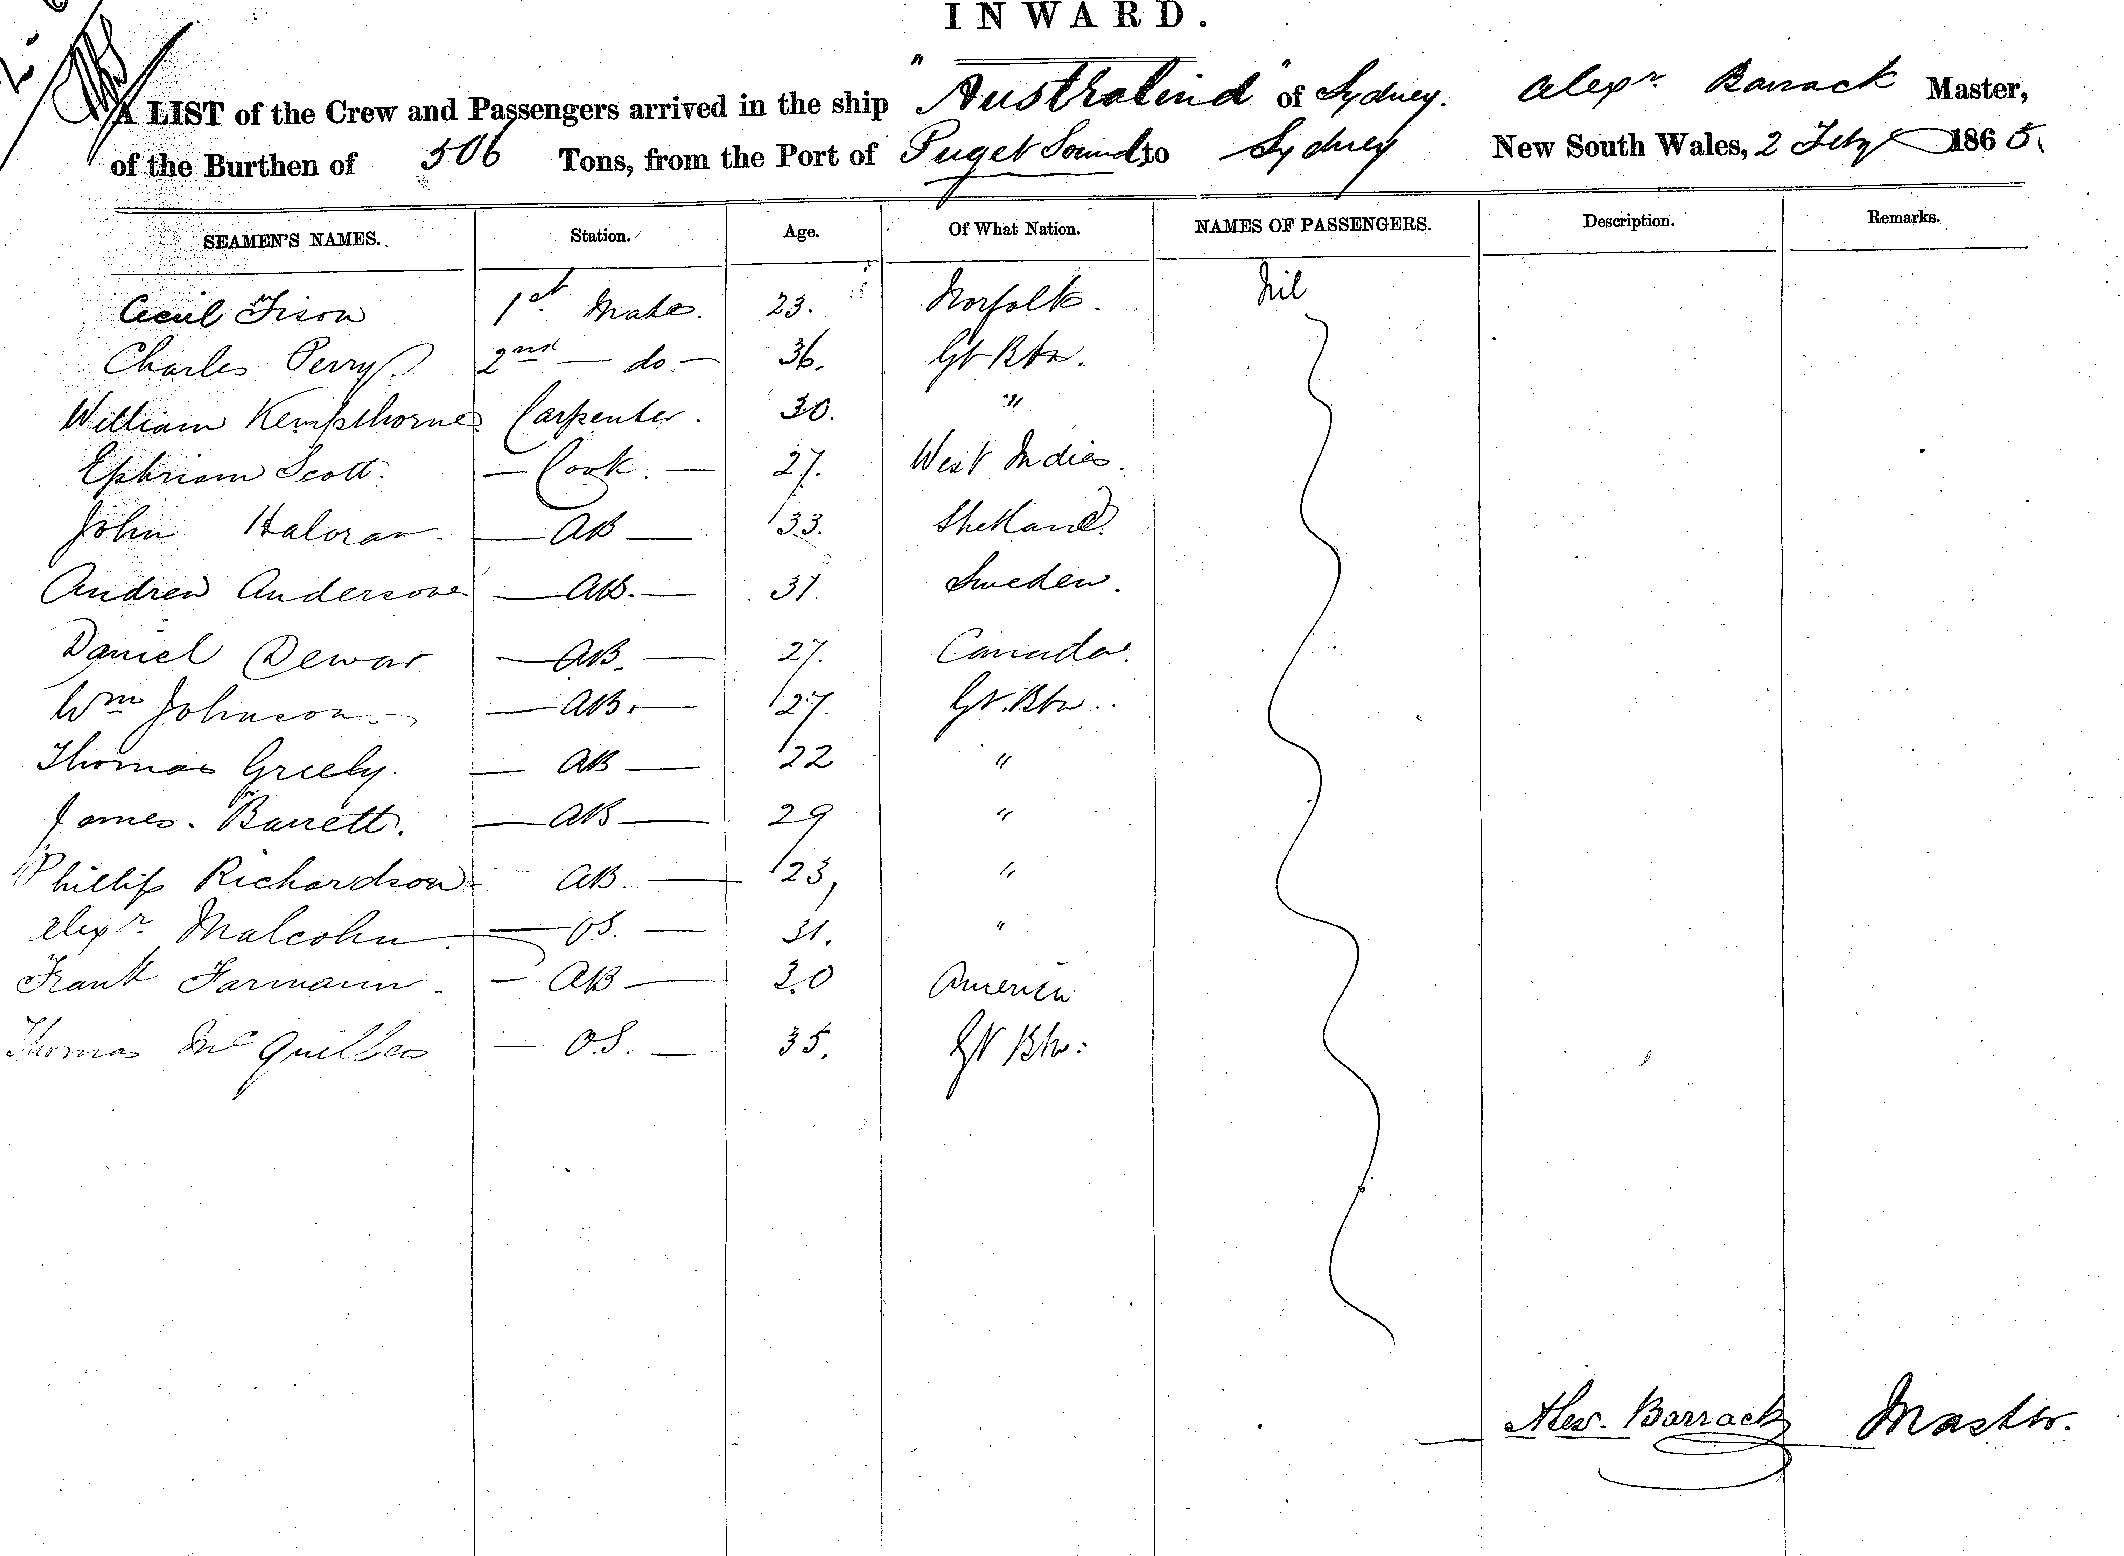 INWARD.
A LIST of the Crew and Passengers arrived in the ship "Australind" of Sydney. Alexr Barrack Master,
of the Burthen of 506 Tons, from the Port of Puget Sound to Sydney New South Wales, 2 Feby 1865.
SEAMEN'S NAMES. Station. Age. Of What Nation. NAMES OF PASSENGERS. Description. Remarks.
Cecil Fison 1st Mate. 23. Norfolk. Nil
Charles Perry. 2nd — do — 36. Gt Btn.
William Kempthorne Carpenter. 30. "
Ephriam Scott. — Cook. — 27. West Indies.
John Haloran — AB — 33. Shetland.
Andrew Anderson — AB. — 31. Sweden.
Daniel Dewar — AB. — 27. Canada.
Wm Johnson — AB. — 27. Gt. Btn.
Thomas Greely. — AB — 22 "
James. Barrett. — AB — 29 "
Phillip Richardson AB. — 23, "
Alexr Malcohn — OS. — 31. "
Frank Farmann. — AB — 30 America
Thomas Mc — O.S. — 35. Gt Btn.
Alexr. Barrack Master.